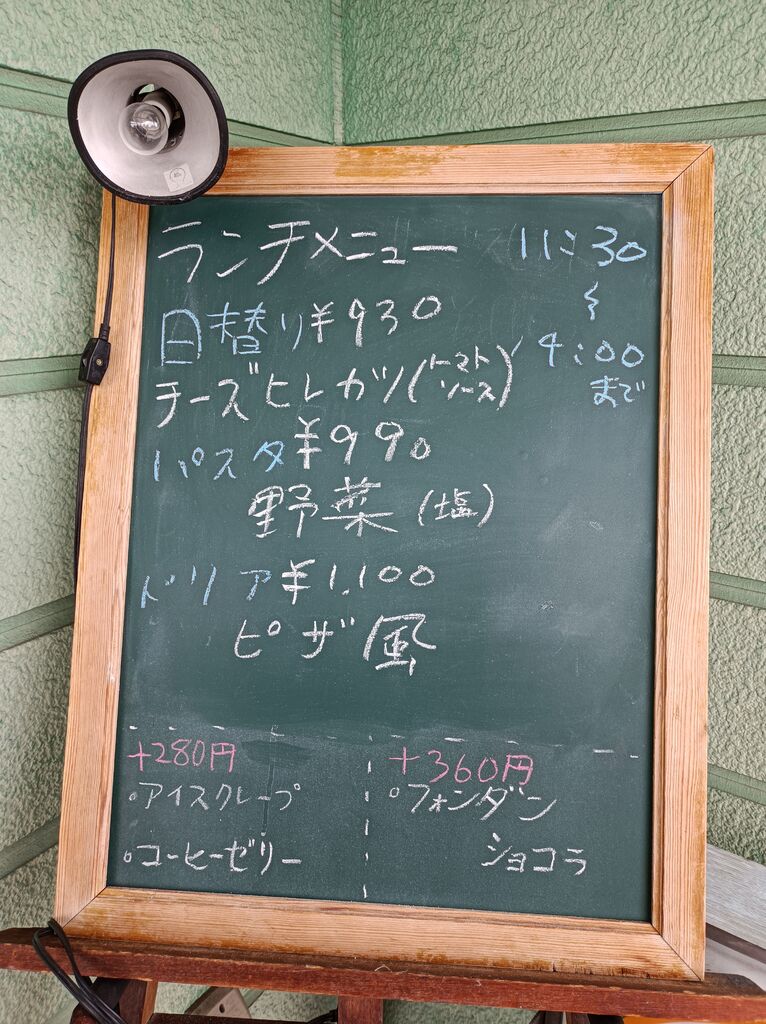 ランチメニュー 11:30
〜
日替り¥930
4:00
チーズヒレカツ(トマトソース)
まで
パスタ¥990
野菜(塩)
ドリア¥1,100
ピザ風
+280円
アイスクレープ
コーヒーゼリー
+360円
フォンダン
ショコラ